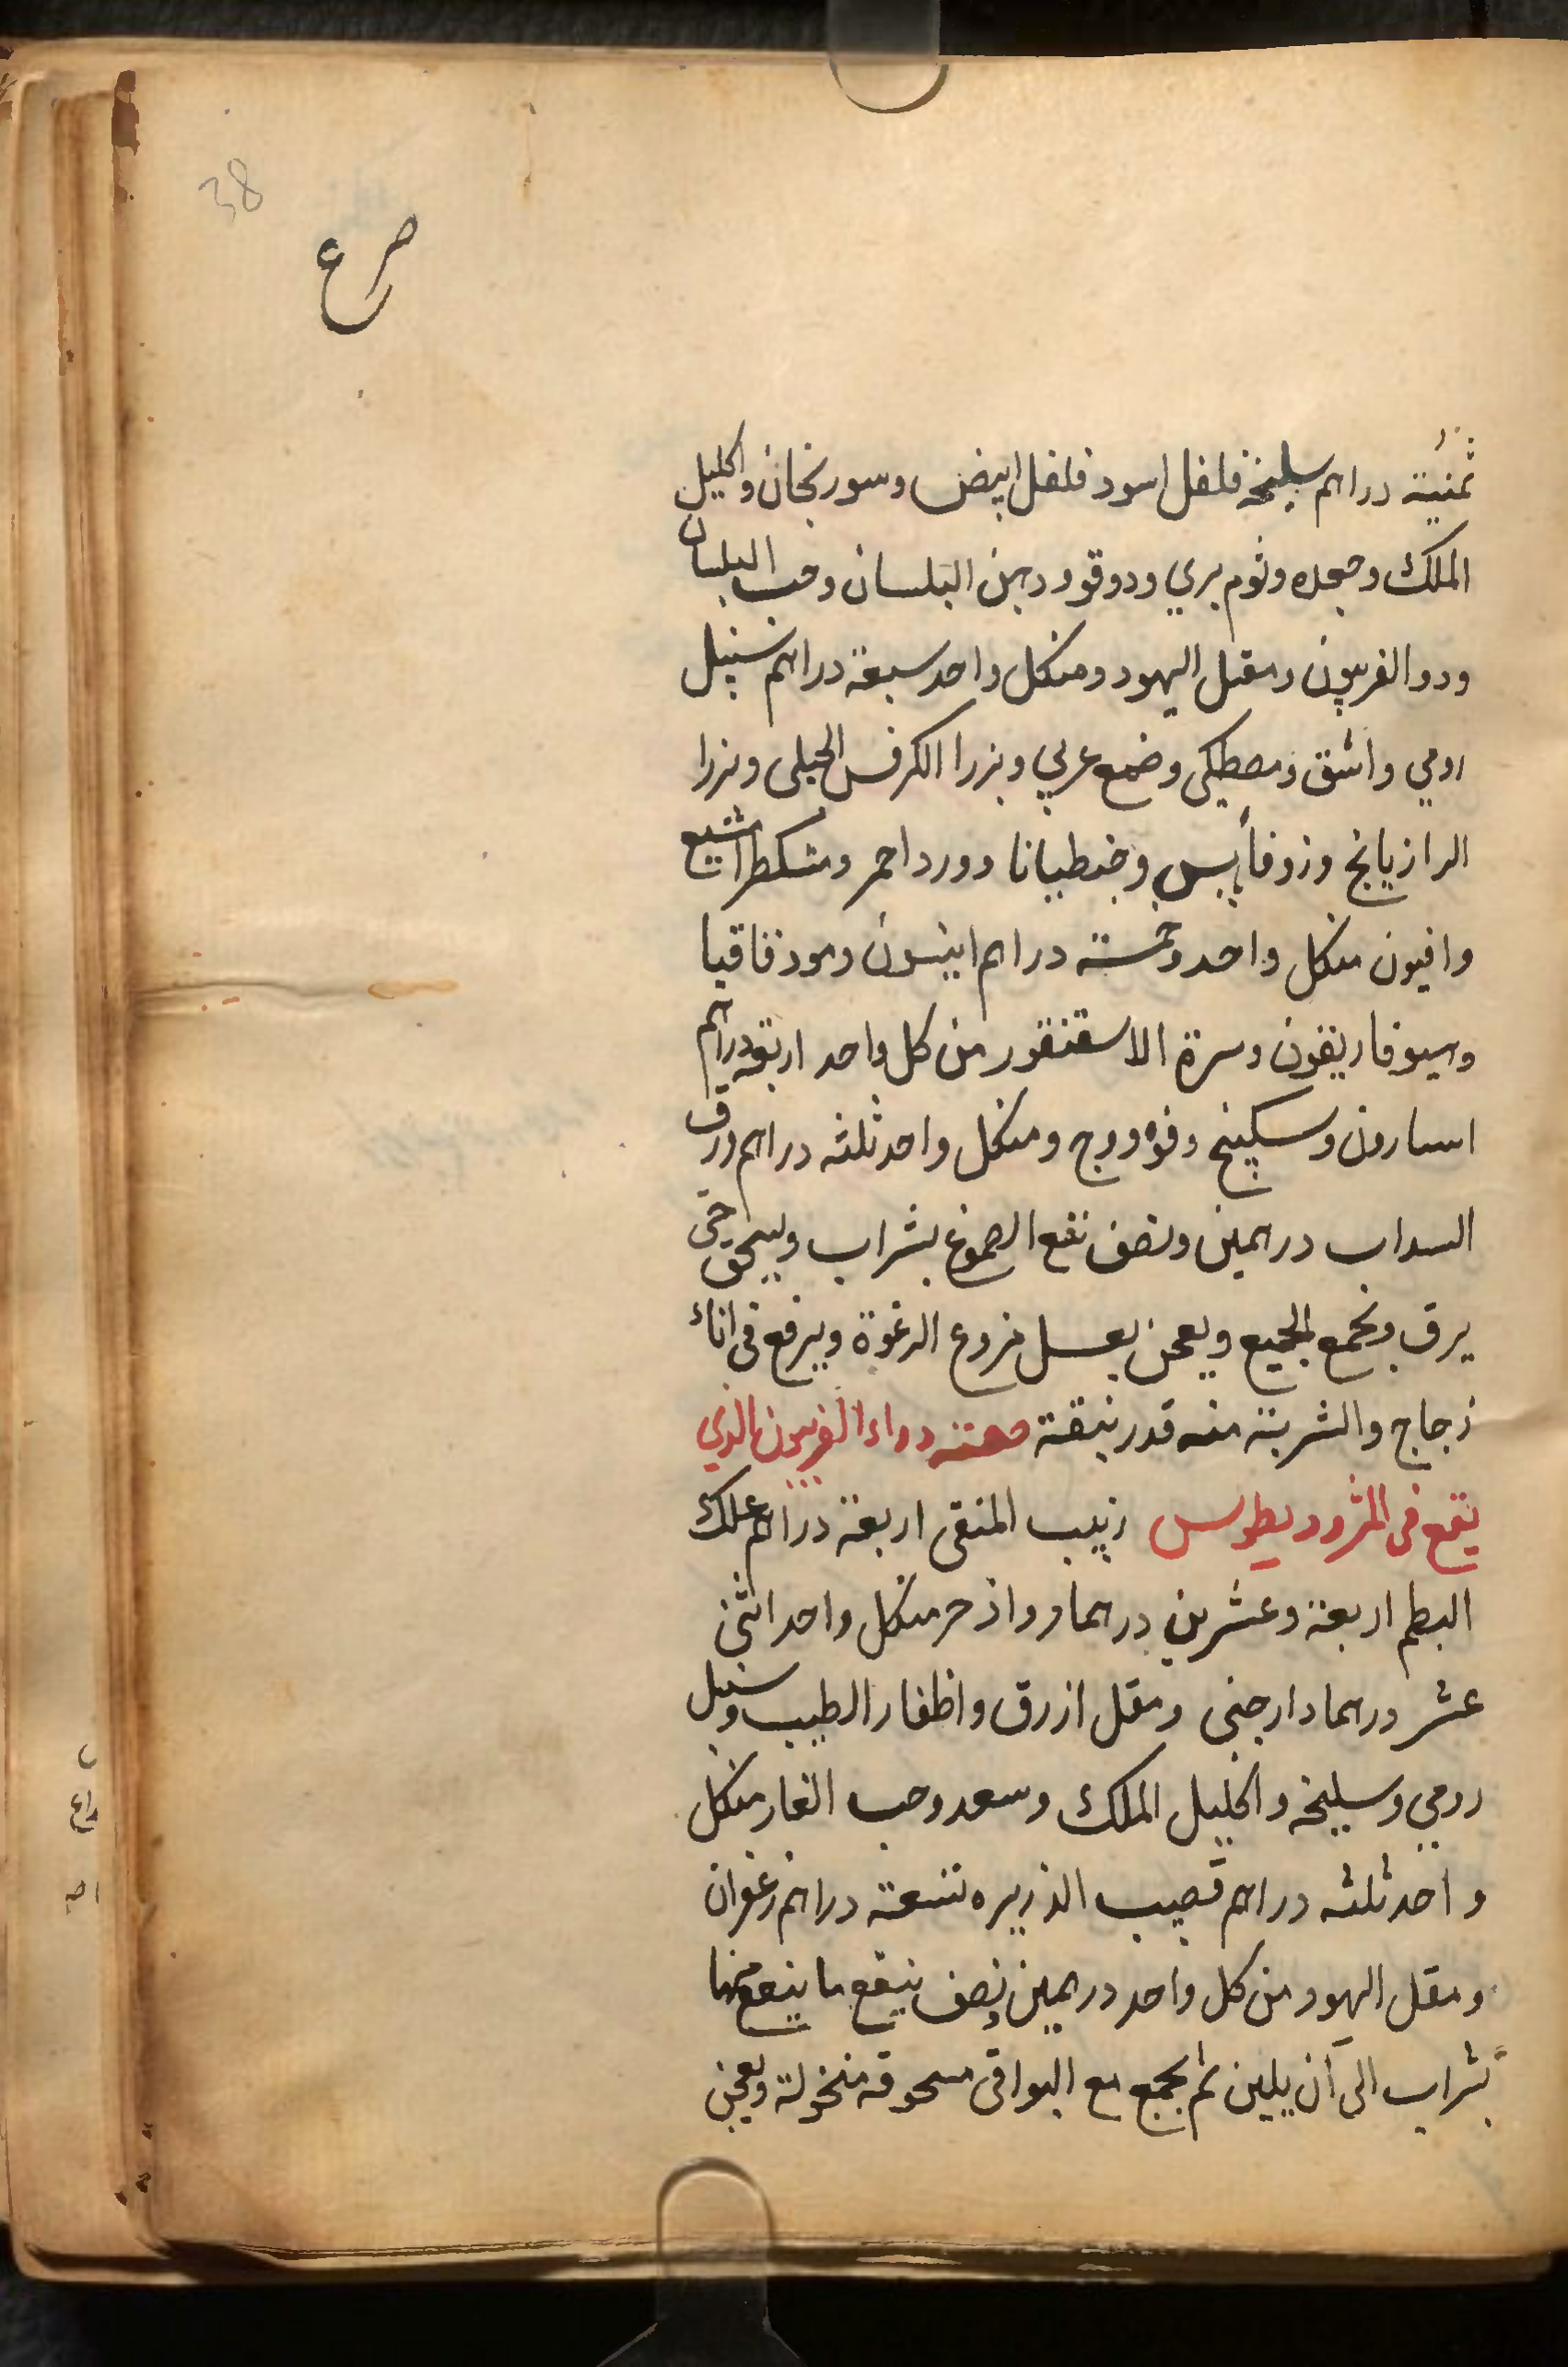 38
صرع
ثمنية دراهم سليخة فلفل اسود فلفل ابيض وسورنجان واكليل
الملك وجعده وثوم بري ودوقو ودهن البلسان وحب البلسان
ودوا الفربيون ومقل اليهود ومنكل واحد سبعة دراهم سنبل
رومي واشق ومصطكى وضمع عربي وبزرا الكرفس الجبلى وبزرا
الرازيانج وزوفا يابس وجنطيانا وورد احمر ومشكطرامشيع
وافيون منكل واحد وخمسته دراهم انيسون ومو وقاقيا
وهيوفاريقون وسرة الاسقنقور من كل واحد اربعة دراهم
اسارون وسكبينج وفوه ووج ومنكل واحد ثلثه دراهم ورق
السداب درهمين ونصف نقع الصموغ بشراب ويسحق حتى
يرق ويجمع الجميع ويعجن بعسل منزوع الرغوة ويرفع فى اناء
زجاج والشربة منه قدر نبقة صفته دواء الفربيون الذي
يقع فى المثروديطوس زبيب المنقى اربعة دراهم علك
البطم اربعة وعشرين درهما واذخر منكل واحد اثنى
عشر درهما دارجنى ومقل ازرق واظفار الطيب وسنبل
رومي وسليخه واكليل الملك وسعد وحب الغار منكل
واحد ثلثه دراهم قصيب الذريره تسعة دراهم زعفران
ومقل اليهود من كل واحد درهمين ونصف ينقع ما ينقع منها
بشراب الى ان يلين ثم يجمع مع البواقى مسحوقه منخولة ويعجن